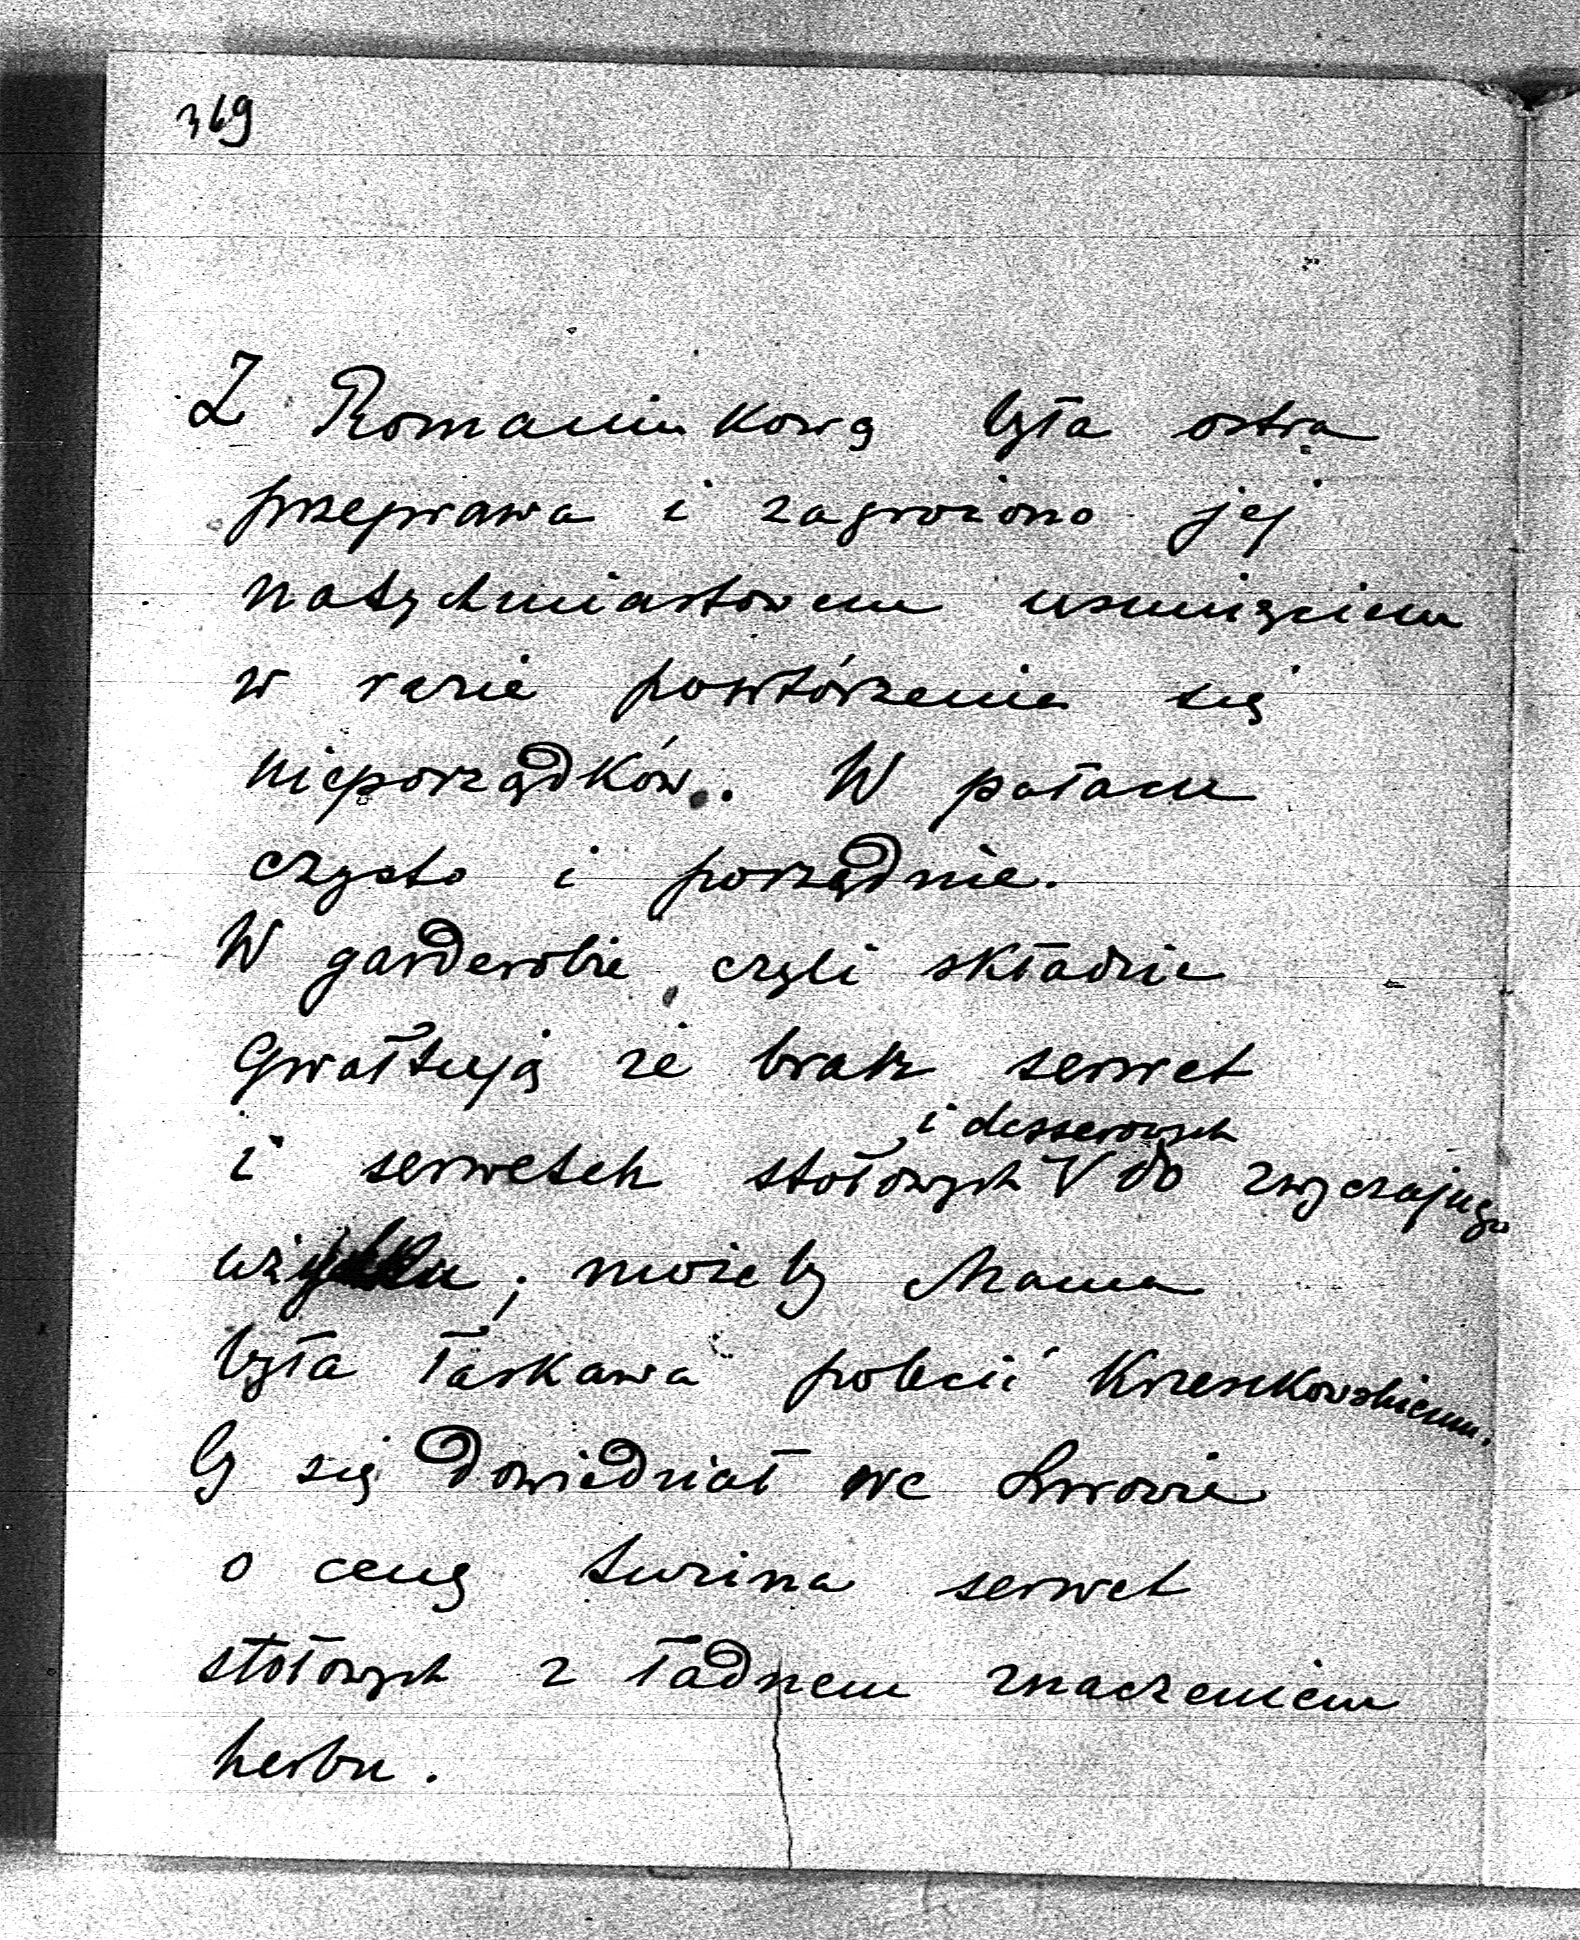 369
Z Romaniukową była ostra
przeprawa i zagrożono jej
natychmiastowem usunięciem
w razie powtórzenia się
nieporządków. W pałacu
czysto i porządnie.
W garderobie czyli składzie
gwałtują że brak serwet
i desserowych
i serwetek stołowych V do zwyczajnego
użytku; możeby Mama
była łaskawa polecić Krzeszkowskiemu,
by się dowiedział we Lwowie
o cenę tuzina serwet
stołowych z ładnem znaczeniem
herbu.